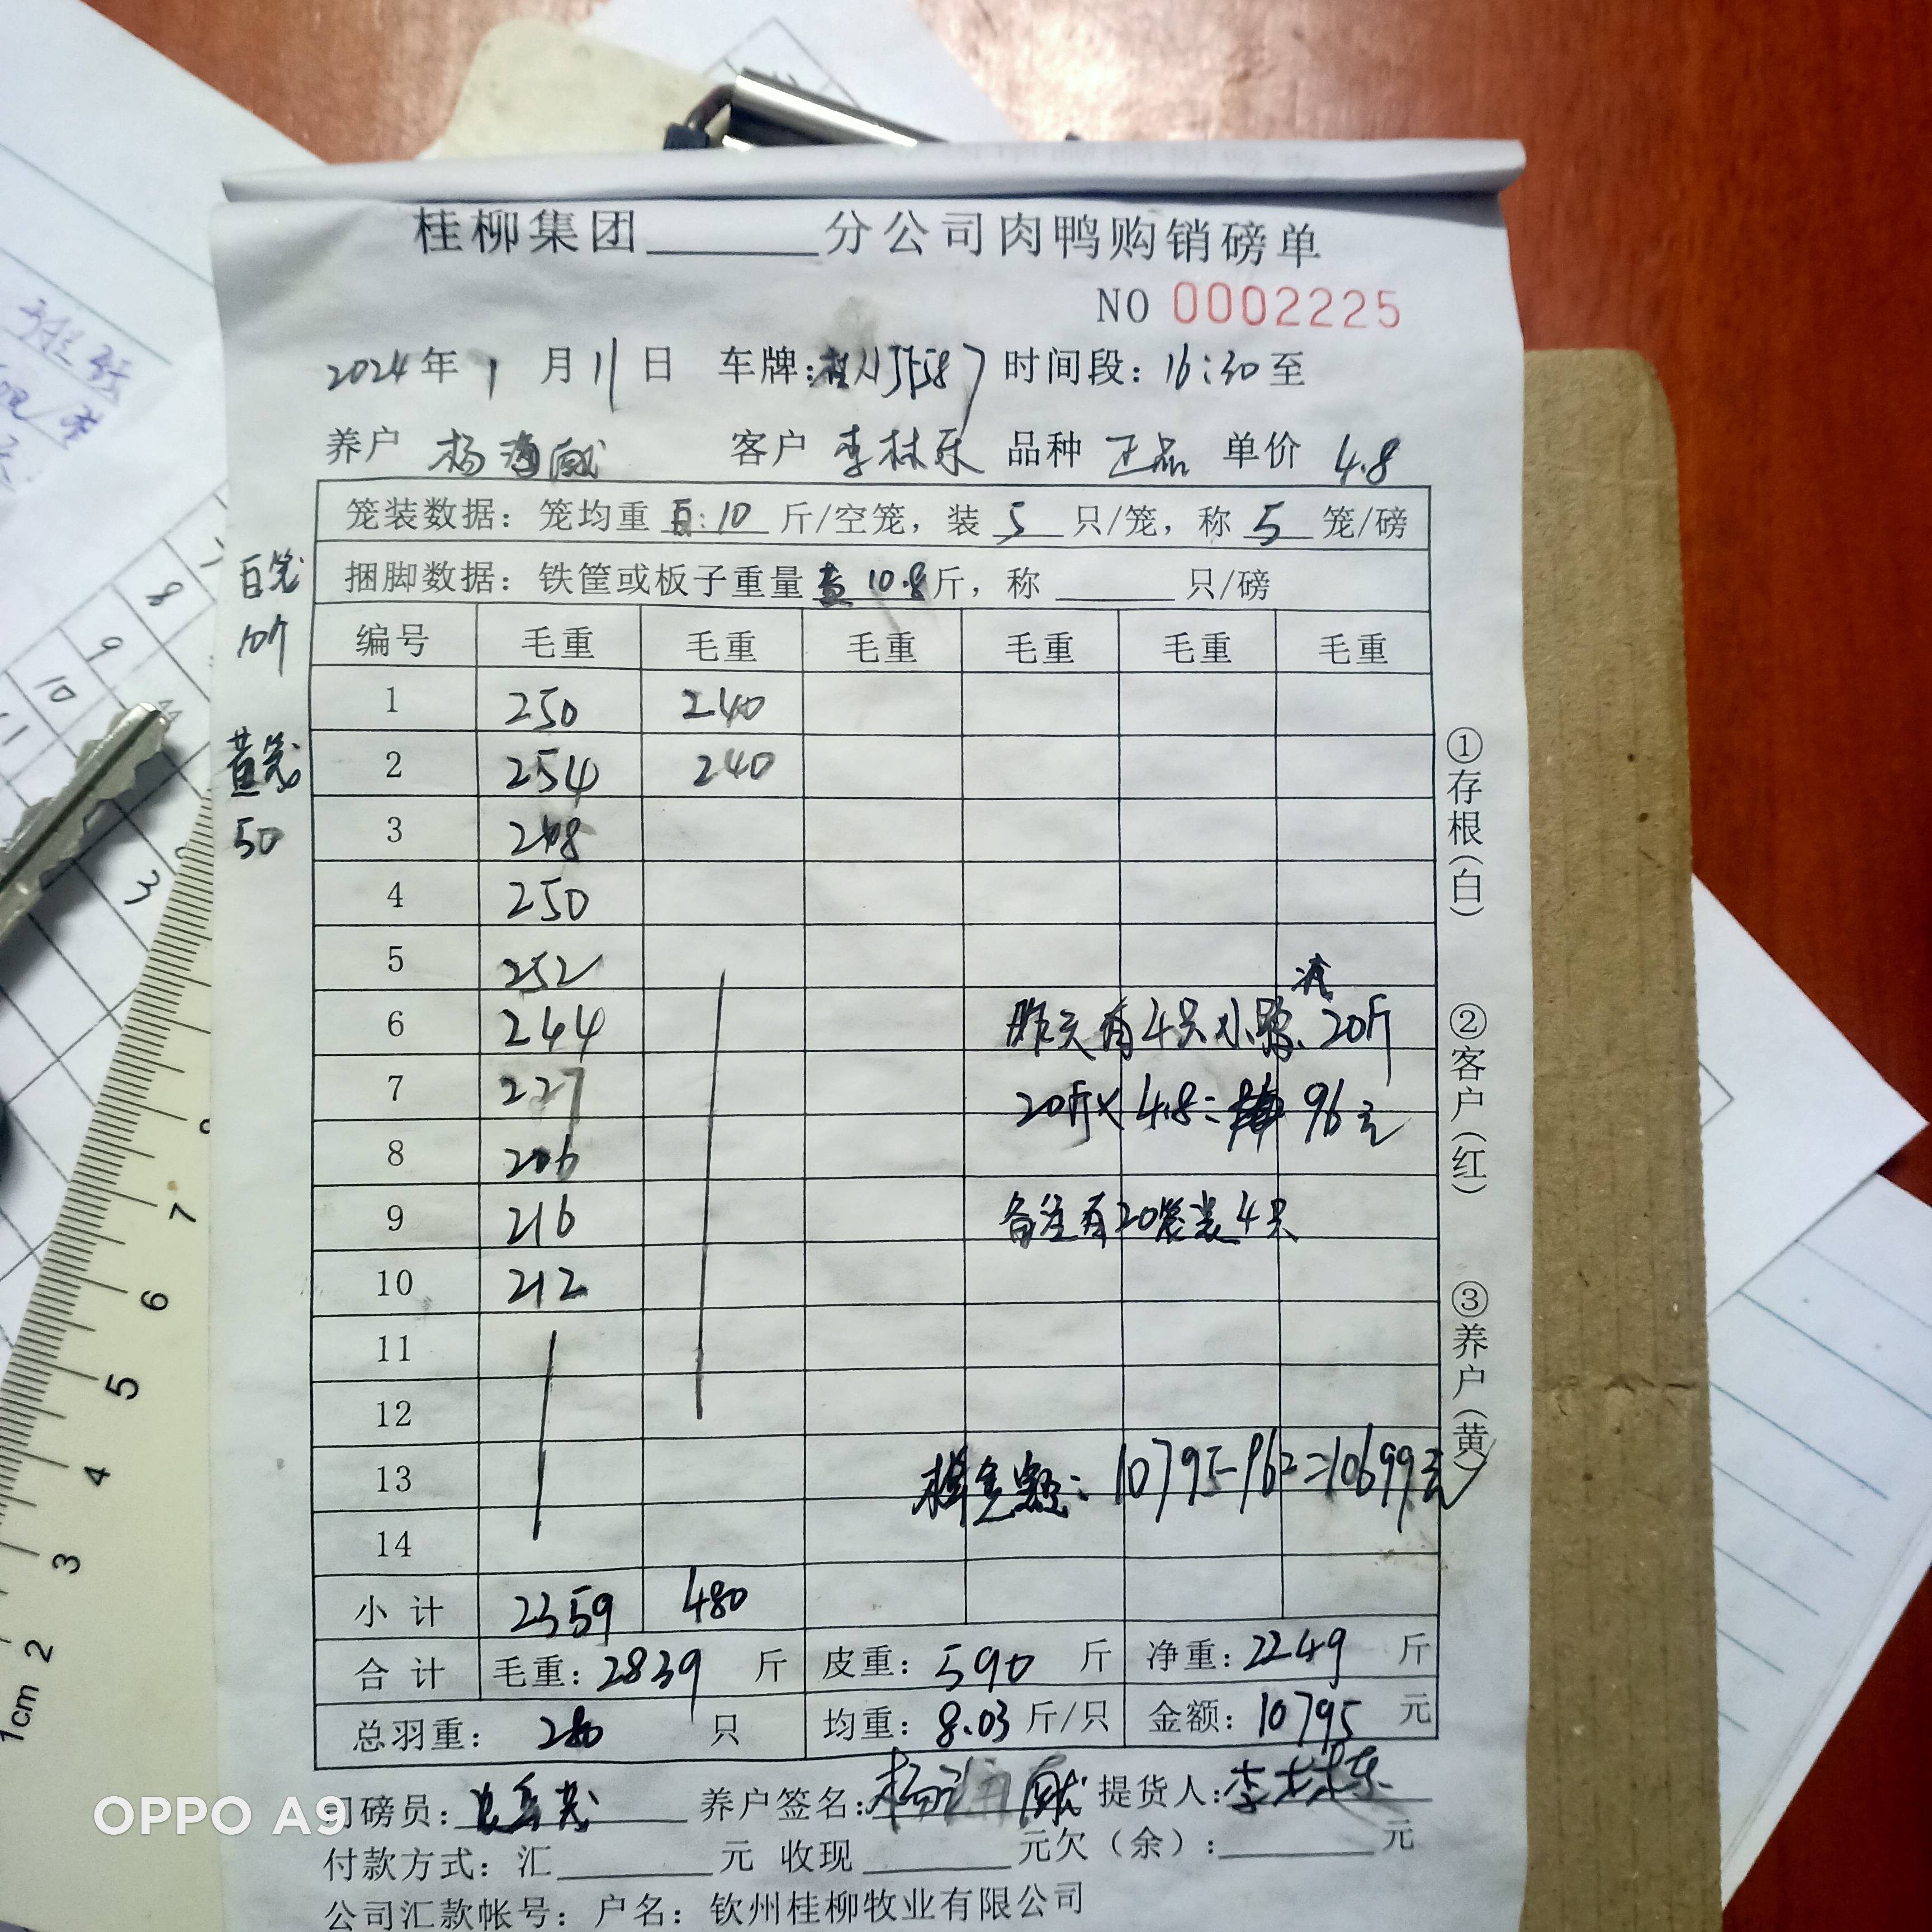 桂柳集团______分公司肉鸭购销磅单
NO 0002225
2024年 1 月 11 日 车牌: 时间段: 16:30至
养户 杨海 客户 李林乐 品种 正品 单价 4.8
笼装数据: 笼均重 白:10 斤/空笼, 装 5 只/笼, 称 5 笼/磅
捆脚数据: 铁筐或板子重量 黄 10.8斤, 称 ______ 只/磅
白笼
黄笼
50
编号 毛重 毛重 毛重 毛重 毛重 毛重
1 250 240
2 254 240
3 248
4 250
5 252
6 244
7 227
8 206
9 216
10 212
11
12
13
14
昨天有4只小鸭 20斤
20斤×4.8= 96元
备注有20笼装4只
金额: 10795-96=10699元
小计 2359 480
合计 毛重: 2839 斤 皮重: 590 斤 净重: 2249 斤
总羽重: 280 只 均重: 8.03 斤/只 金额: 10795 元
司磅员: 养户签名: 杨 提货人: 李林
付款方式: 汇______元 收现______元欠(余):______元
公司汇款帐号: 户名: 钦州桂柳牧业有限公司
①存根(白)
②客户(红)
③养户(黄)
8
9
10
11
3
7
6
5
4
3
2
1cm
OPPO A9